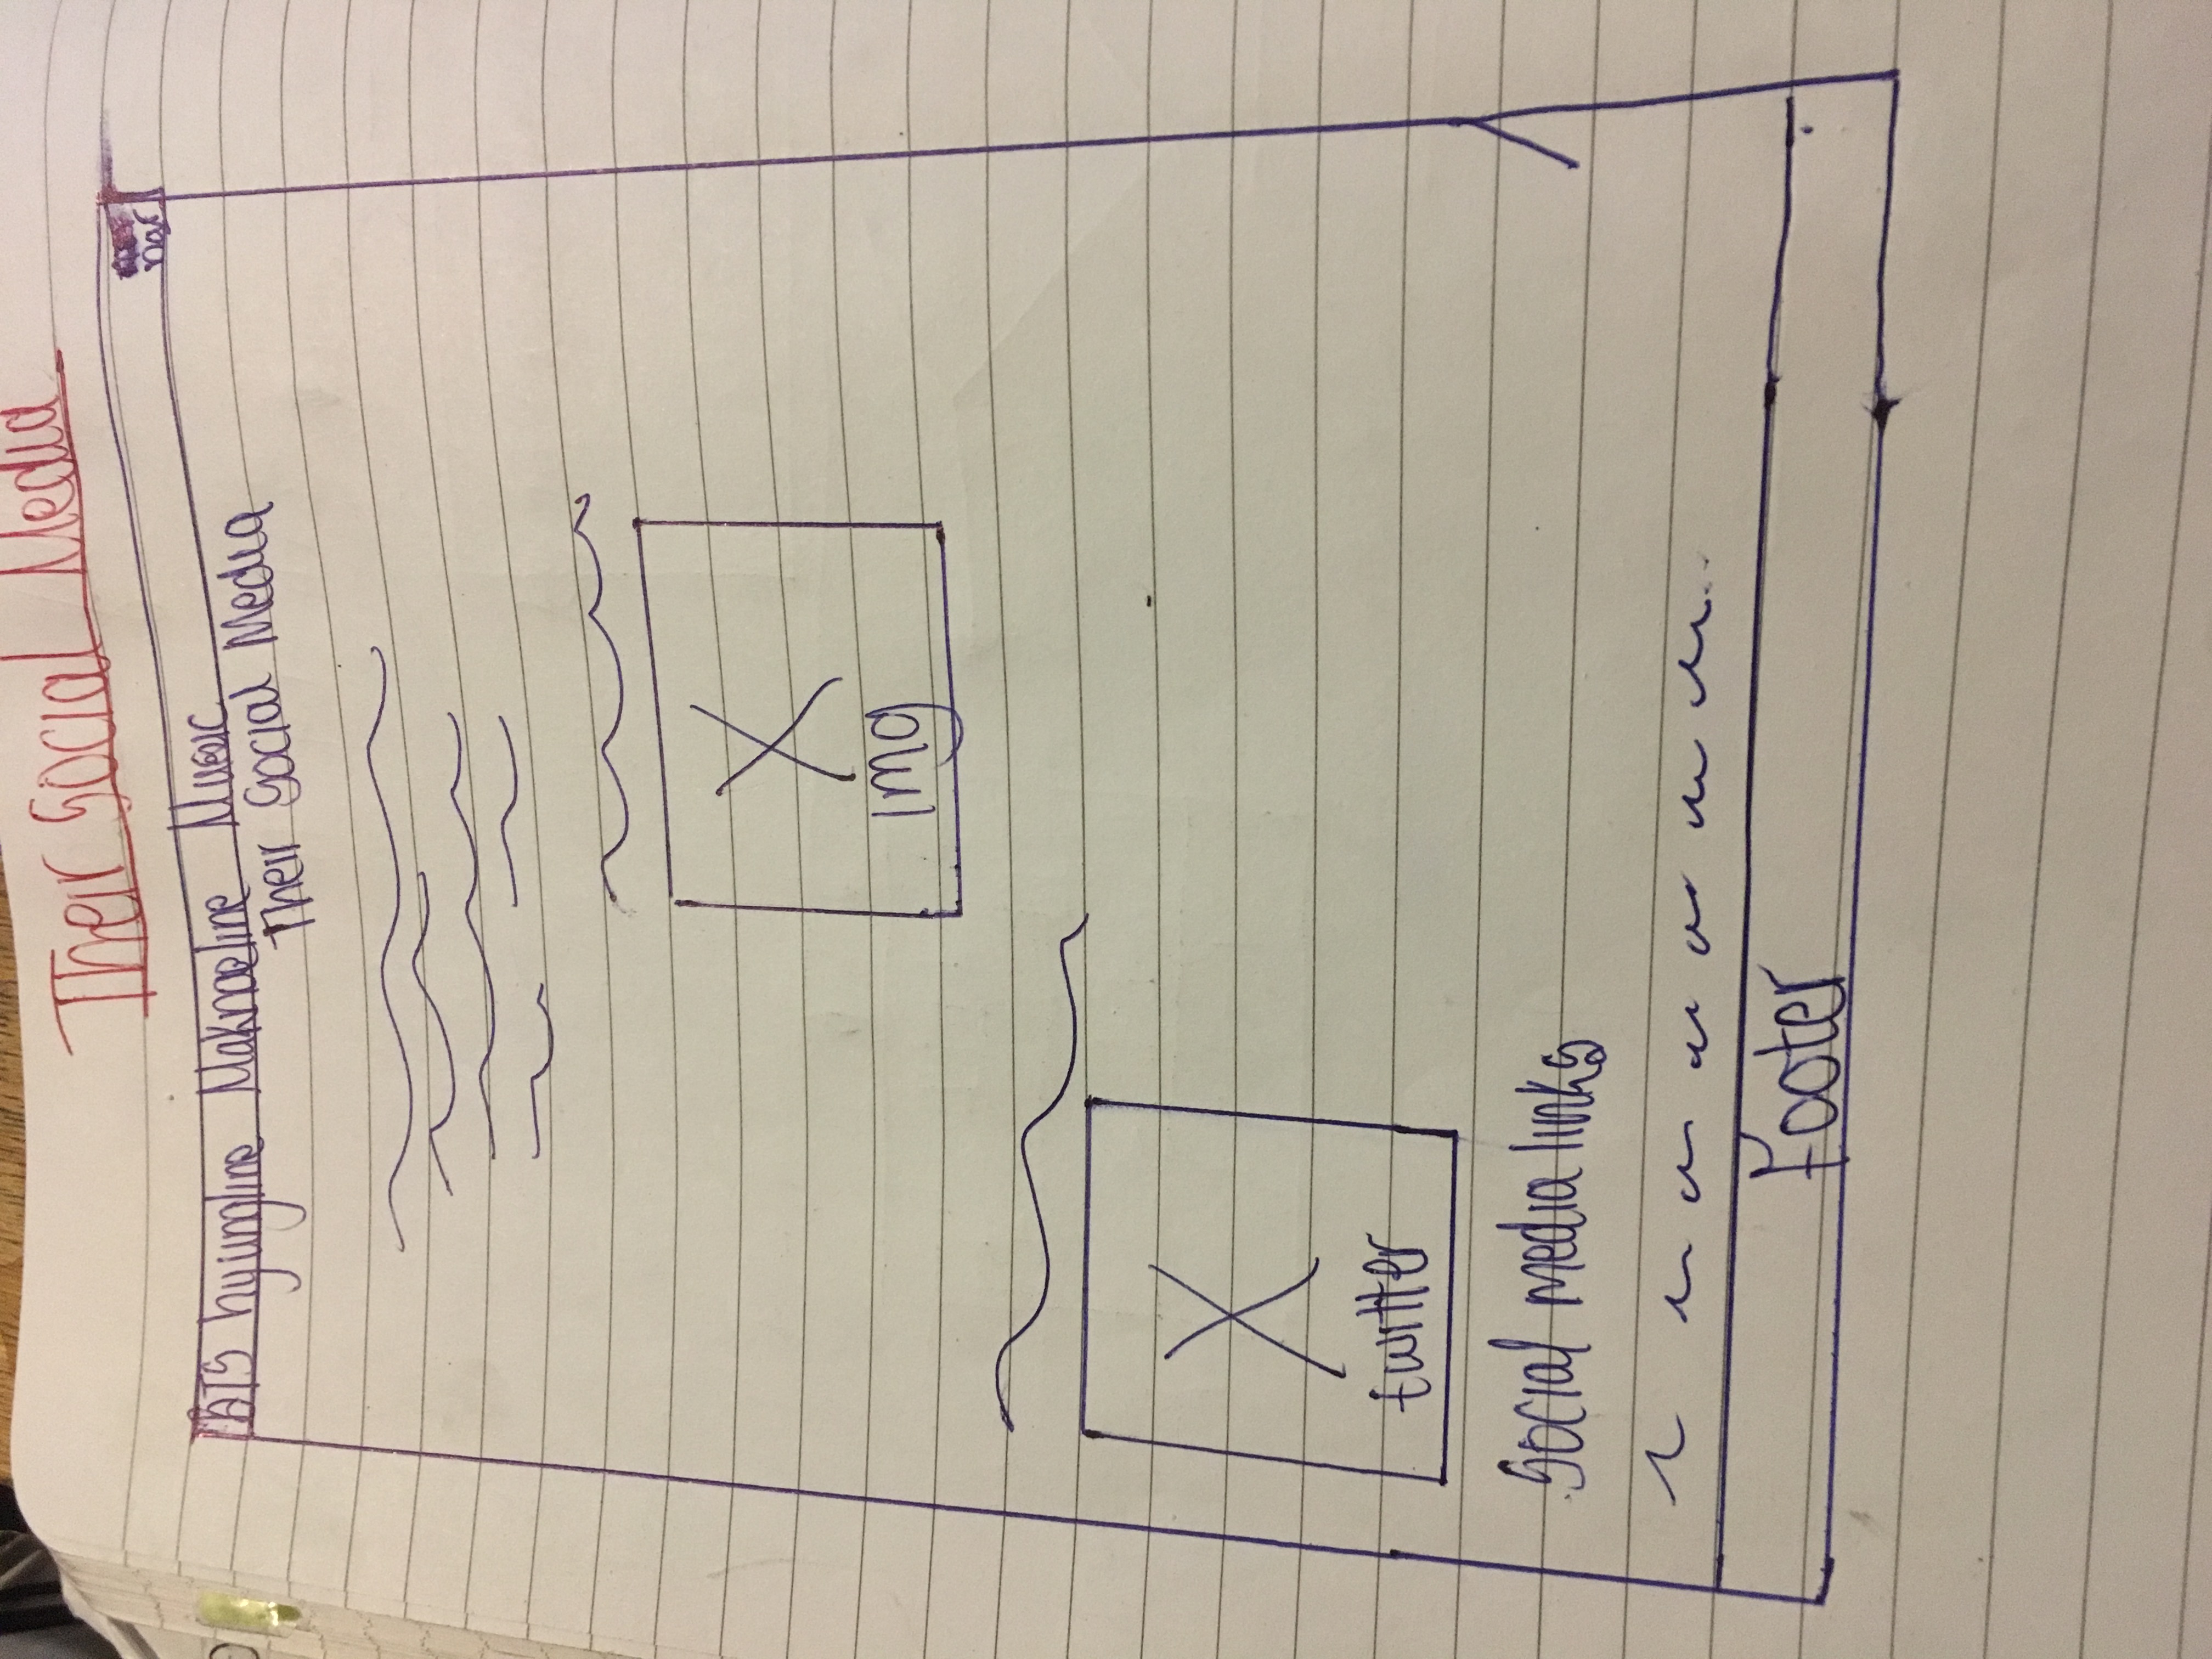 Their Social Media
nav
BTS hyungline Maknaeline Music
Their Social Media
img
twitter
Social media links
Footer